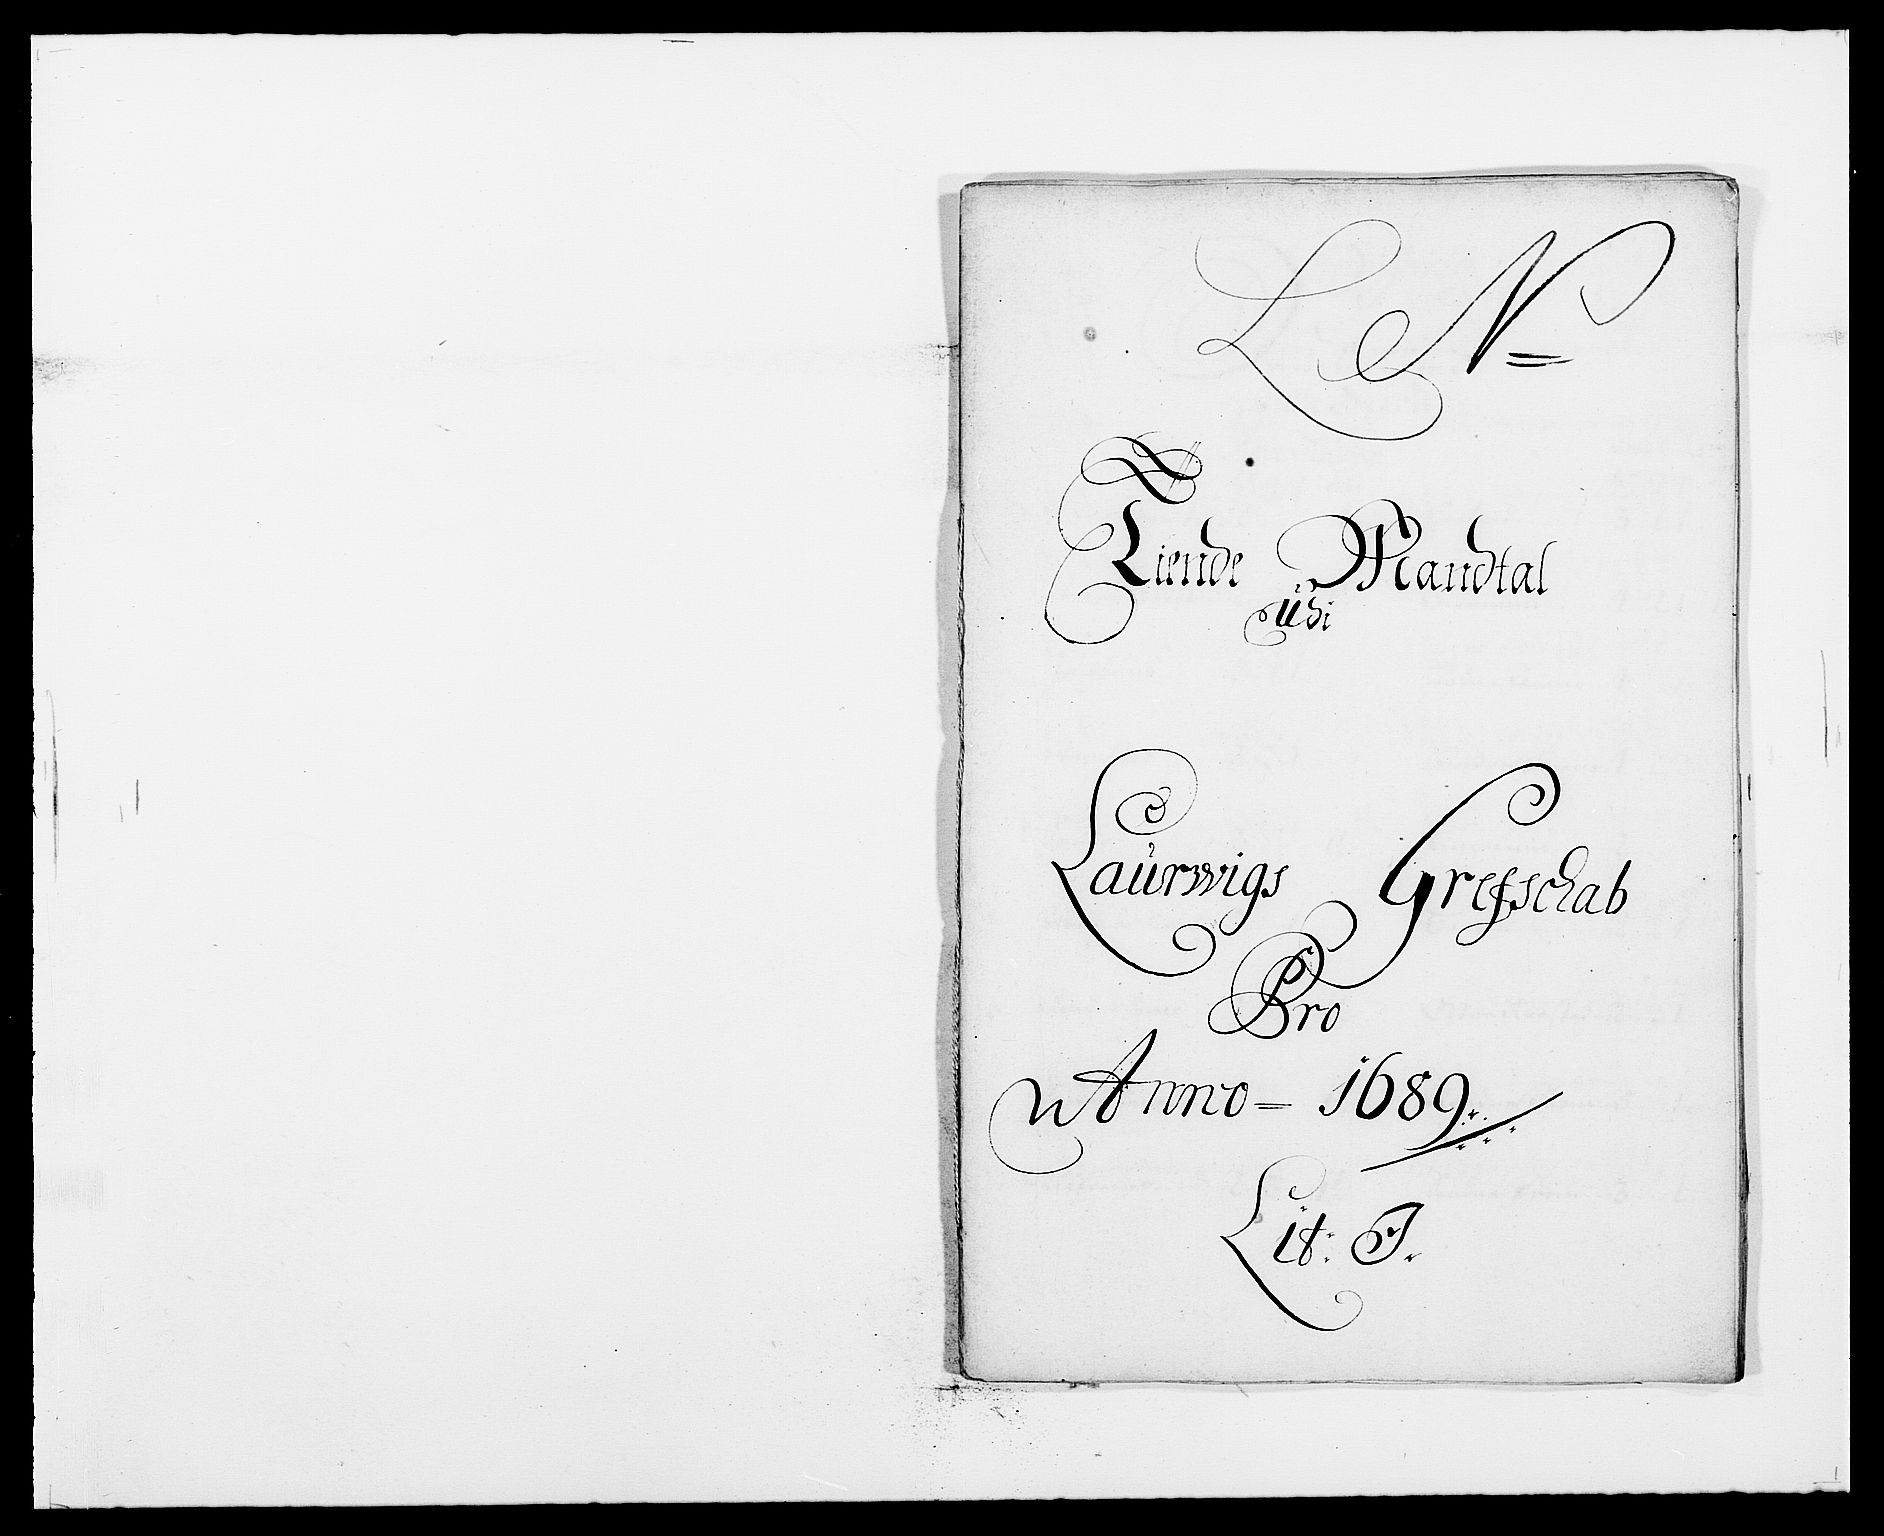 L N
Tiende Mandtal
Udi
Laürwigs Grefschab
Pro
Anno = 1689.
Lit: J.